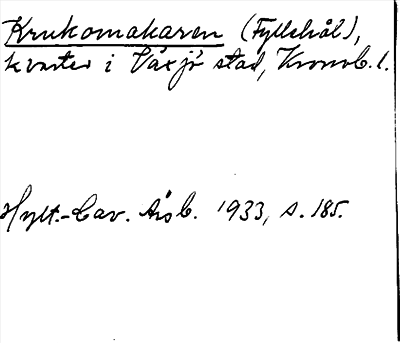 Krukomakaren (Fyllehål),
kvarter i Växjö stad, Kronob. l.
Hylt.-Cav. Årsb. 1933, s. 185.